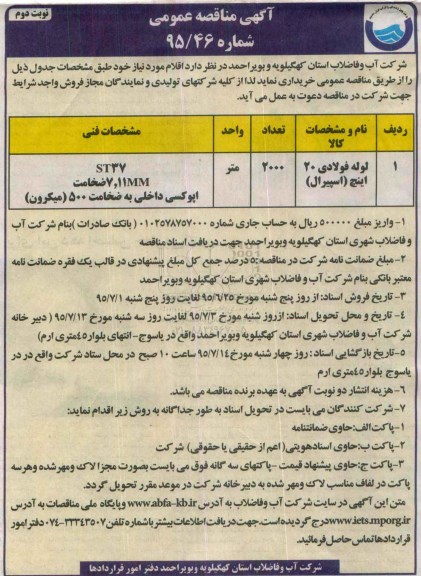 نوبت دوم
آگهی مناقصه عمومی
شماره ۹۵/۴۶
شرکت آب وفاضلاب استان کهگیلویه و بویراحمد در نظر دارد اقلام مورد نیاز خود طبق مشخصات جدول ذیل
را از طریق مناقصه عمومی خریداری نماید لذا از کلیه شرکتهای تولیدی و نمایندگان مجاز فروش واجد شرایط
جهت شرکت در مناقصه دعوت به عمل می آید.
ردیف نام و مشخصات کالا تعداد واحد مشخصات فنی
۱ لوله فولادی ۲۰ ۲۰۰۰ متر ST۳۷
اینچ (اسپیرال) ۷,۱۱MMضخامت
اپوکسی داخلی به ضخامت ۵۰۰ (میکرون)
۱- واریز مبلغ ۵۰۰۰۰۰ ریال به حساب جاری شماره ۰۱۰۲۵۷۸۷۵۷۰۰۰ ( بانک صادرات )بنام شرکت آب
و فاضلاب شهری استان کهگیلویه وبویراحمد جهت دریافت اسناد مناقصه
۲-مبلغ ضمانت نامه شرکت در مناقصه :۵ درصد جمع کل مبلغ پیشنهادی در قالب یک فقره ضمانت نامه
معتبر بانکی بنام شرکت آب و فاضلاب شهری استان کهگیلویه وبویراحمد
۳- تاریخ فروش اسناد: از روز پنج شنبه مورخ ۹۵/۶/۲۵ لغایت روز پنج شنبه ۹۵/۷/۱
۴- تاریخ و محل تحویل اسناد: ازروز شنبه مورخ ۹۵/۷/۳ لغایت روز سه شنبه مورخ ۹۵/۷/۱۳ ( دبیر خانه
شرکت آب و فاضلاب شهری استان کهگیلویه وبویراحمد واقع در یاسوج-انتهای بلوار۴۵متری ارم)
۵-تاریخ بازگشایی اسناد : روز چهار شنبه مورخ۹۵/۷/۱۴ ساعت ۱۰ صبح در محل ستاد شرکت واقع در در
یاسوج بلوار۴۵متری ارم
۶-هزینه انتشار دو نوبت آگهی به عهده برنده مناقصه می باشد.
۷-شرکت کنندگان می بایست در تحویل اسناد به طور جداگانه به روش زیر اقدام نمایند:
۱-پاکت الف:حاوی ضمانتنامه
۲-پاکت ب:حاوی اسنادهویتی( اعم از حقیقی یا حقوقی) شرکت
۳-پاکت ج:حاوی پیشنهاد قیمت -پاکتهای سه گانه فوق می بایست بصورت مجزا لاک ومهرشده وهرسه
پاکت در لفاف مناسب لاک ومهر شده به دبیرخانه شرکت در موعد مقرر تحویل گردد.
متن این آگهی در سایت شرکت آب وفاضلاب به آدرس www.abfa-kb.ir وپایگاه ملی مناقصات به آدرس
www.iets.mporg.ir درج گردیده است.جهت دریافت اطلاعات بیشتر با شماره تلفن۳۳۳۴۳۵۰۷-۰۷۴ دفتر امور
قراردادها تماس حاصل فرمائید.
شرکت آب وفاضلاب استان کهگیلویه وبویراحمد دفتر امور قراردادها